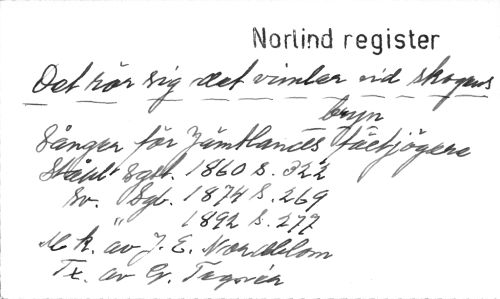 Norlind register
Det rör sig det vimlar vid skogens
bryn
Sånger för Jämtlands fältjägare
Sgb. 1860 S. 322
Sv. Sgb. 1874 S. 269
" 1892 S. 277
M k. av J. E. Nordblom
Tx. av G. Tegnér